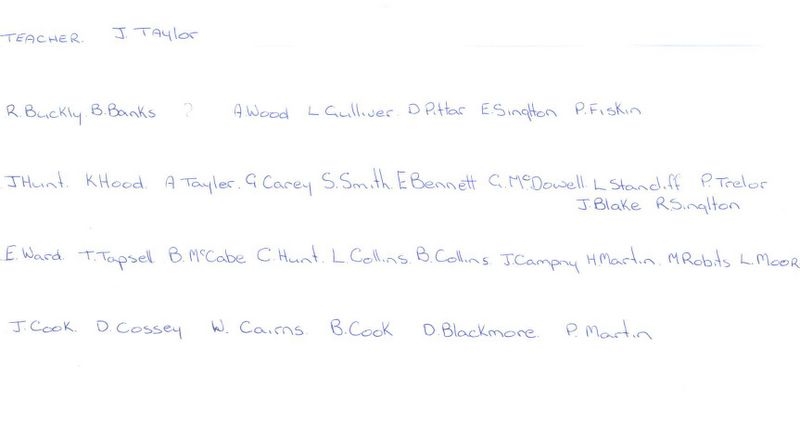 TEACHER. J. TAylor
R. Buckly B. Banks ? A Wood L Gulliver. D Pittar E. Singlton P. Fiskin
J Hunt. K Hood. A Tayler. G Carey S. Smith. E Bennett G. McDowell. L Standiff P. Trelor
J. Blake R Singlton
E. Ward. T. Tapsell B. McCabe C. Hunt. L. Collins. B. Collins J. Campny H Martin. M Robits L. Moor
J. Cook. D. Cossey W. Cairns. B. Cook D. Blackmore. P. Martin